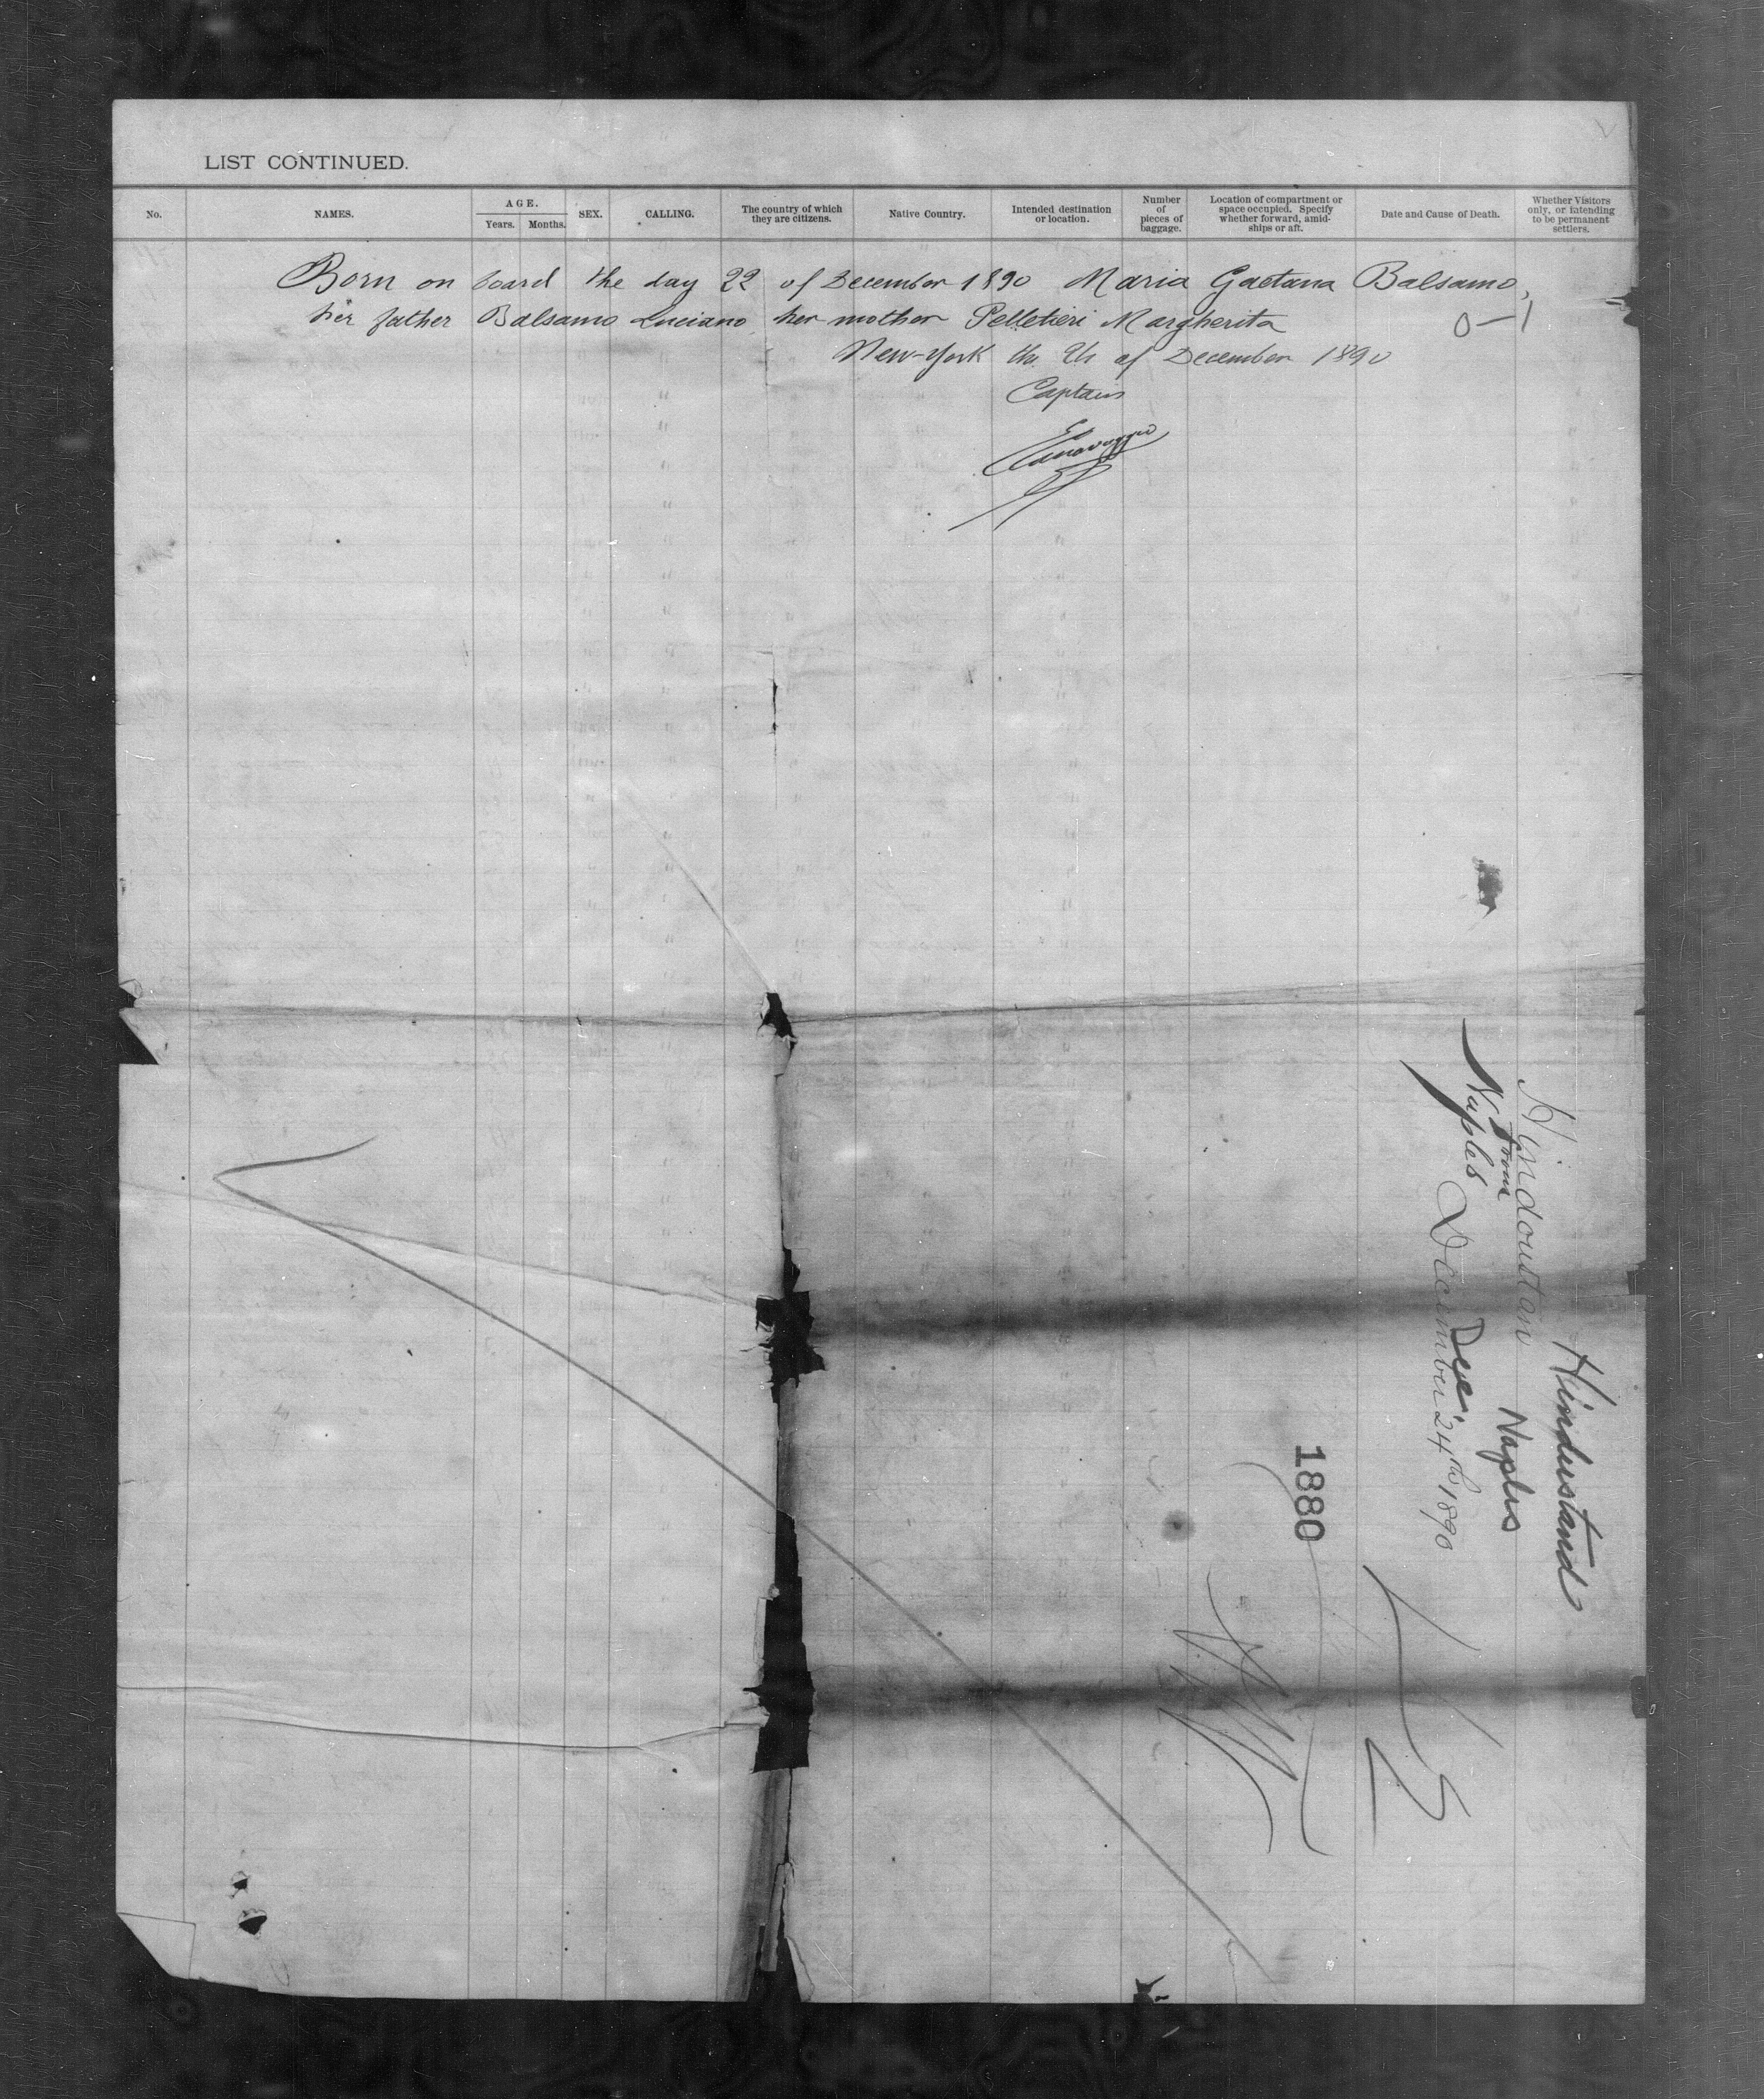 LIST CONTINUED.
No.
NAMES.
AGE.
Years.
Months.
SEX.
CALLING.
The country of which
they are citizens.
Native Country.
Intended destination
or location.
Number
of
pieces of
baggage.
Location of compartment or
space occupied. Specify
whether forward, amid-
ships or aft.
Date and Cause of Death.
Whether Visitors
only, or intending
to be permanent
settlers.
Born on board the day 22 of December 1890 Maria Gaetana Balsamo,
her father Balsamo Luciano her mother Pelletieri Margherita
0-1
New-York the of December 1890
Captain
Hindustand
Hindoustan
from
Naples
Naples
Dec.
December 24th 1890
1880